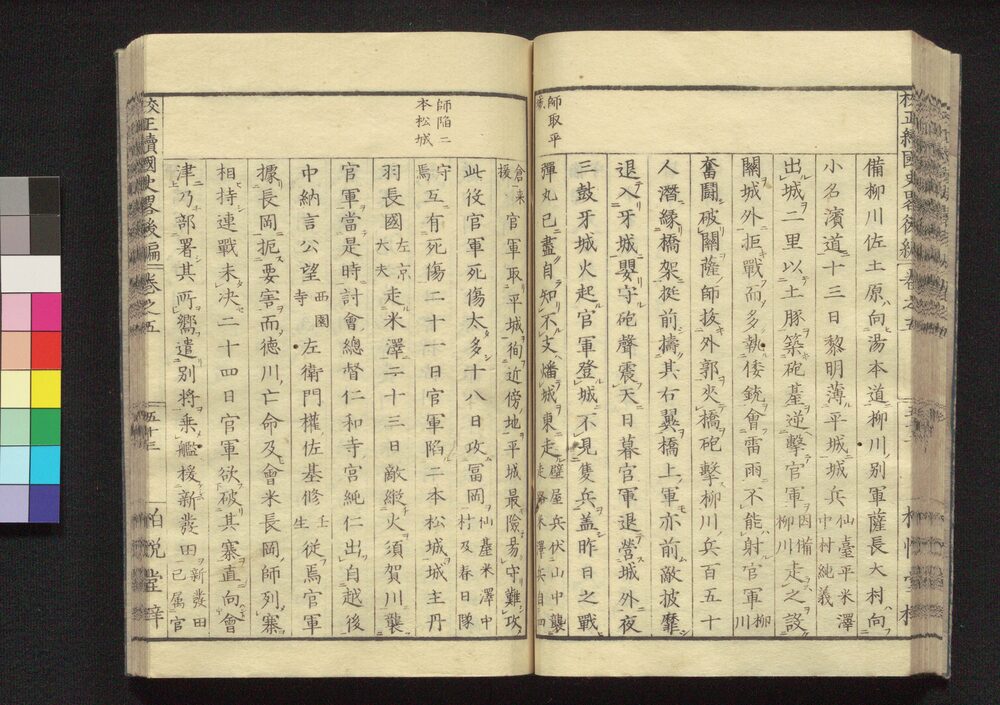 師取平
備柳川佐土原向湯本道柳川別軍薩長大村向
小名濱道十三日黎明薄平城城兵仙臺平米澤中村純義
出城二里以土豚築砲臺逆擊官軍因備柳川走之設
關城外拒戰而多執倭銃會雷雨不能射官軍柳川
奮鬪破關薩師拔外郭火橋砲擊柳川兵百五十
人潛緣橋架挺前擣其右翼橋上軍亦前敵披靡
退入牙城嬰守砲聲震天日暮官軍退營城外夜
三鼓牙城火起官軍登城不見隻兵蓋昨日之戰
彈丸已盡自知不支燔城東走
倉來援官軍取平城徇近傍地平城最險易守難攻
師陷二本松城
此役官軍死傷太多十八日攻冨岡仙臺米澤中村及春日隊
守焉互有死傷二十一日官軍陷二本松城城主丹
羽長國左京大夫走米澤二十三日敵縱火須賀川襲
官軍當是時討會總督仁和寺宮純仁出自越後
中納言公望西園寺左衛門權佐基修壬生從焉官軍
據長岡扼要害而徳川亡命及會米長岡師列寨
相持連戰未决二十四日官軍欲破其寨直向會
津乃部署其所嚮遣別將乘艦援新發田新發田已属官
校正續國史畧後編
卷之五
五十三
柏悅堂梓